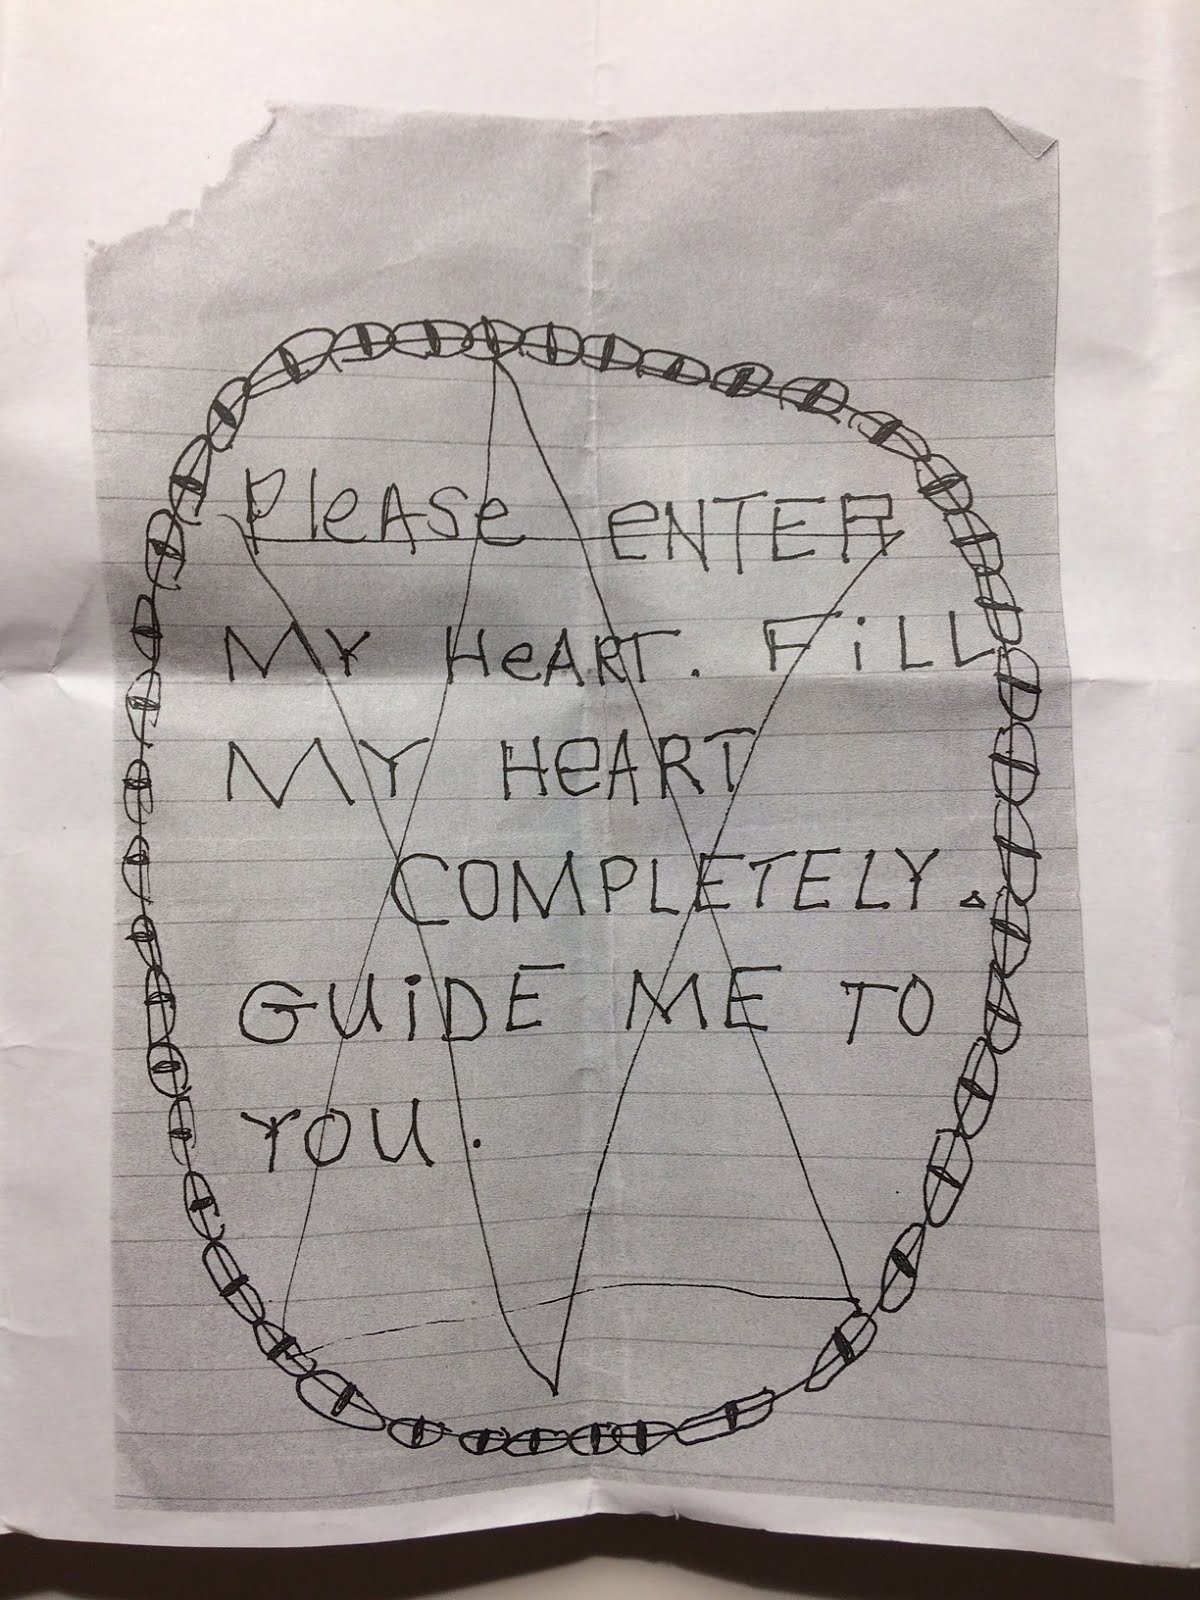 PleASe eNTER
MY HeART. FiLL
MY HeART
COMPLETELY.
GUiDE ME TO
YOU.